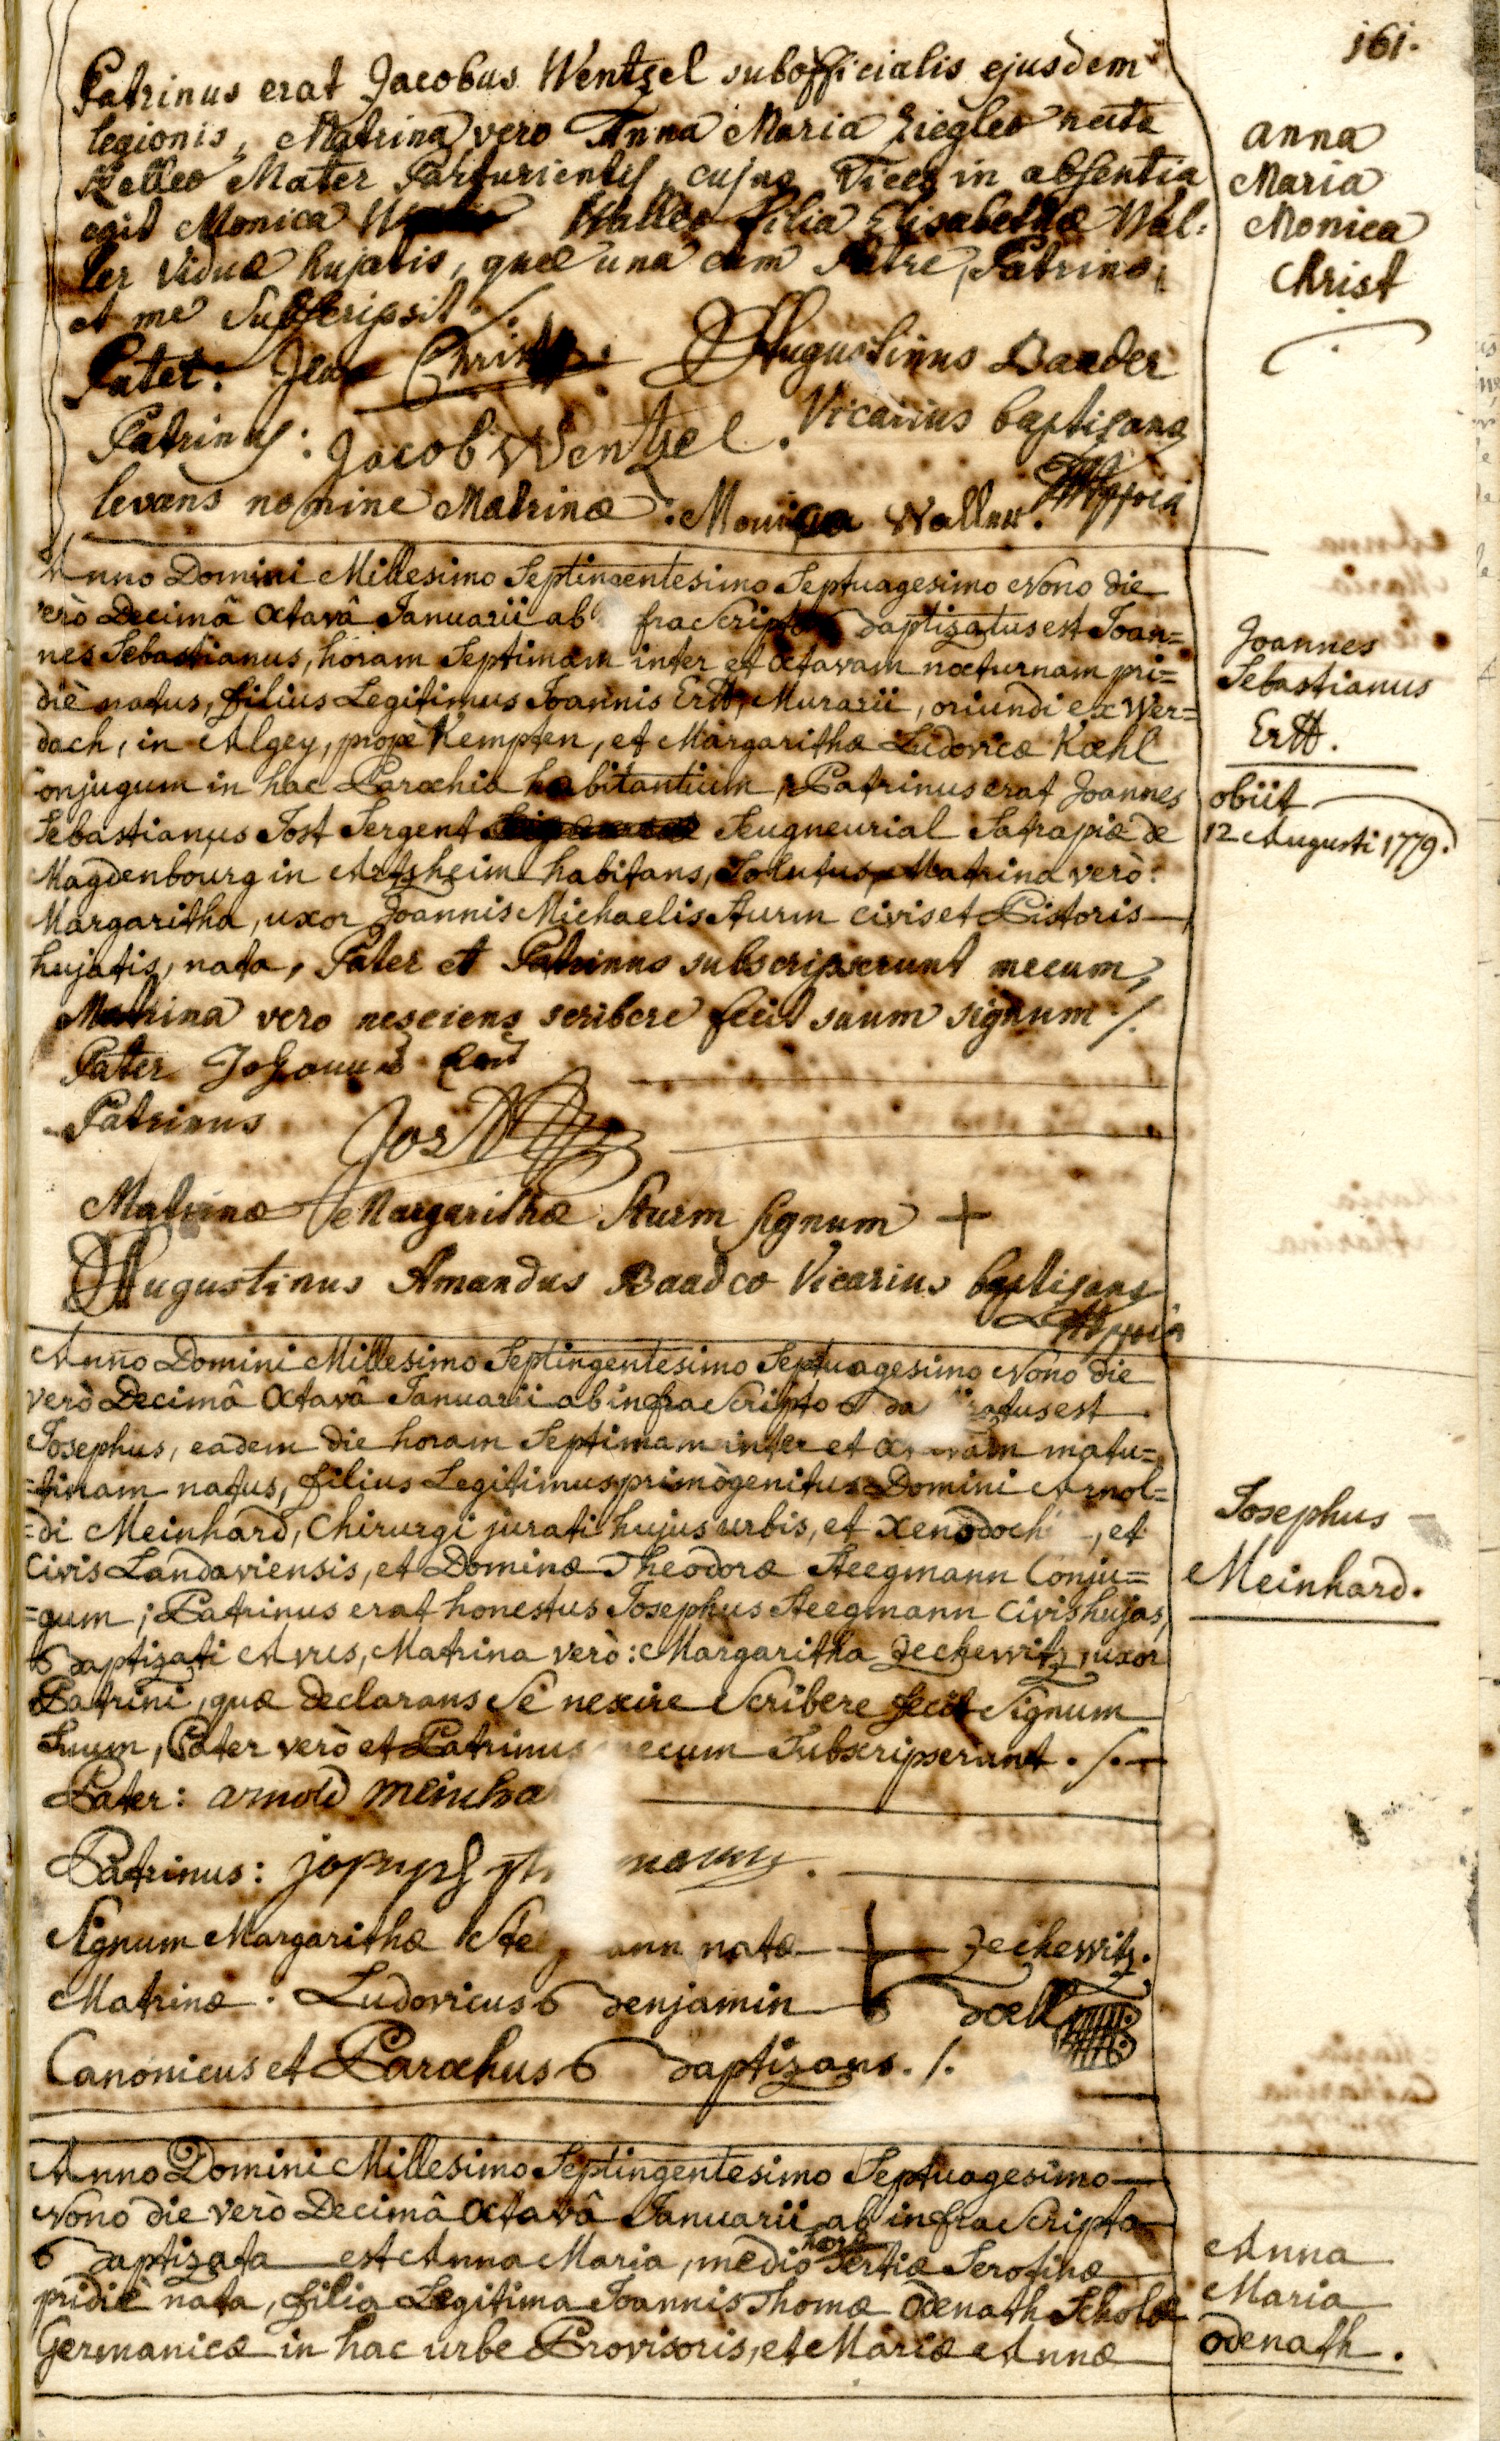 161.
Patrinus erat Jacobus Wentzel subofficialis ejusdem
legionis, Matrina vero Anna Maria Ziegler nata
Keller Mater Parturientis, cujus Vices in absentia
egit Monica Waller filia Elisabethæ Wal:
ler Viduæ hujatis, quæ una cum Patre, Patrino,
et me Subscripsit ./.
Anna
Maria
Monica
Christ
Pater: Jean Christ. Augustinus Baader
Patrinus: Jacob Wentzel. Vicarius baptisans
levans nomine Matrinæ: Monica Waller.
Anno Domini Millesimo Septingentesimo Septuagesimo Nono die
verò Decimâ Octavâ Januarii ab fraScripto Baptizatus est Joan=
nes Sebastianus, horam Septimam inter et octavam nocturnam pri=
diè natus, filius Legitimus Joannis Ertt, Murarii, oriundi ex Wer=
dach, in Algey, propè Kempten, et Margarithæ Ludovicæ Kœhl
onjugum in hac Parochia habitantium, Patrinus erat Joannes
Sebastianus Jost Sergent Seugneurial Satrapiæ de
Magdenbourg in Artzheim habitans, Solutus, Matrina verò:
Margaritha, uxor Joannis Michaelis Sturm civis et Pistoris
hujatis, nata, Pater et Patrinus subscripserunt mecum,
Matrina vero nesciens scribere fecit suum signum ./.
Joannes
Sebastianus
Ertt.
obiit
12 Augusti 1779.
Pater Johannes Ert
Patrinus Jost
Matrinæ Margarithæ Sturm signum +
Augustinus Amandus Baader Vicarius baptisans
Anno Domini Millesimo Septingentesimo Septuagesimo Nono die
verò Decimâ Octavâ Januarii ab infraScripto Ba zatus est
Josephus, eadem die horam Septimam inter et octavam matu=
=tinam natus, filius Legitimus primògenitus Domini Arnol=
=di Meinhard, Chirurgi jurati hujus urbis, et Xenodoch , et
Civis Landaviensis, et Dominæ Theodoræ Steegmann Conju=
=gum; Patrinus erat honestus Josephus Steegmann Civis hujas,
Baptizati Avus, Matrina verò: Margaritha Zechewitz, uxor
Patrini, quæ declarans Se nescire Scribere fecit Signum
Suum, Pater verò et Patrinus mecum Subscripserunt ./.
Josephus
Meinhard.
Pater: arnold meinha
Patrinus: joseph st mann.
Signum Margarithæ Ste ann natæ + Zechewitz.
Matrinæ. Ludovicus Benjamin Bœll
Canonicus et Parochus Baptizans ./.
Anno Domini Millesimo Septingentesimo Septuagesimo
Nono die verò Decimâ Octavâ Januarii ab infraScripto
Baptizata est Anna Maria, mediò horæ Tertiæ Serotinæ
pridiè nata, filia Legitima Joannis Thomæ Odenath Scholæ
Germanicæ in hac urbe Provisoris, et Mariæ Annæ
Anna
Maria
Odenath.